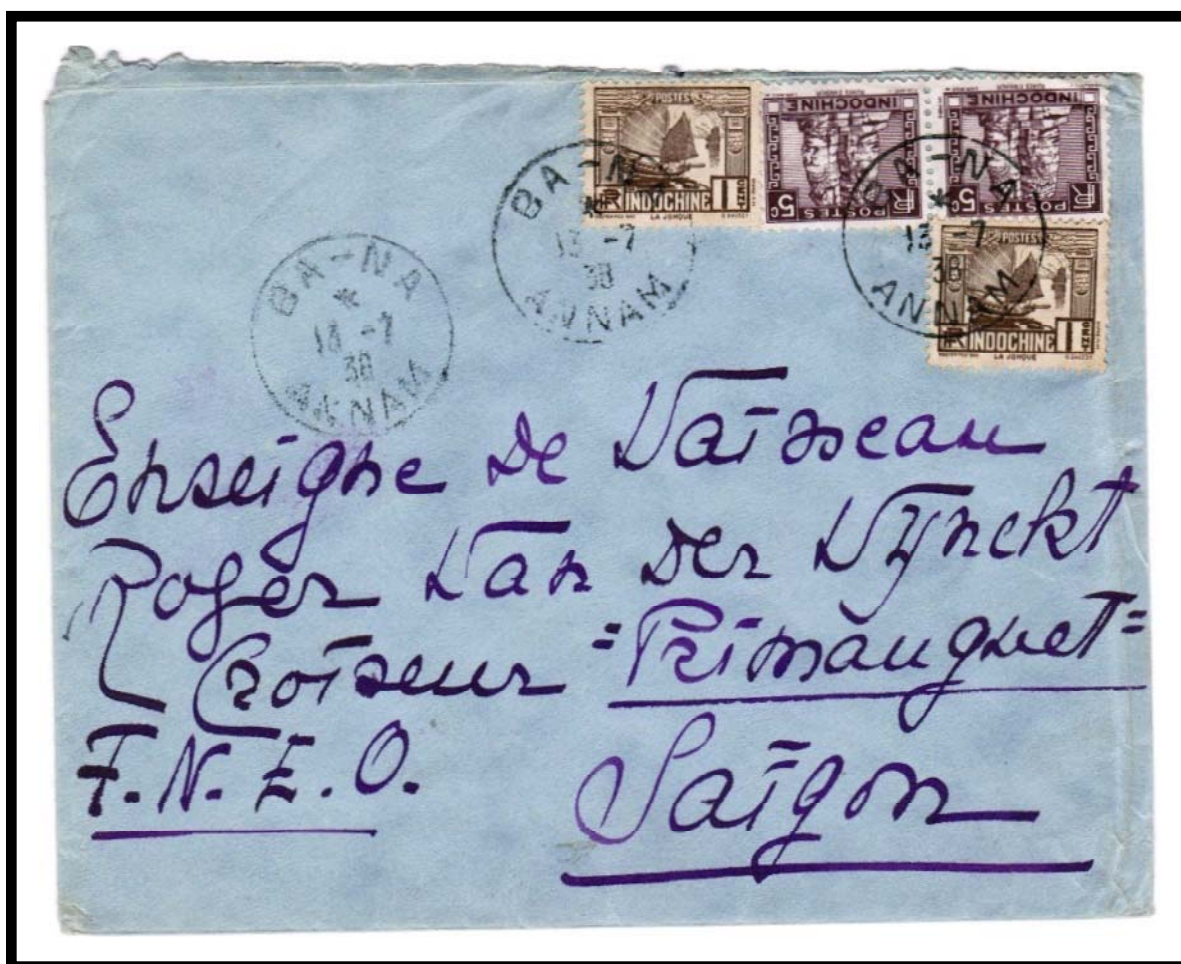 POSTES
INDOCHINE
LA JONQUE
INDOCHINE
POSTES
5c
RF
INDOCHINE
POSTES
5c
RF
POSTES
INDOCHINE
LA JONQUE
BA-NA
*
13 -7
38
ANNAM
BA-NA
*
13 -7
38
ANNAM
BA-NA
*
13 -7
38
ANNAM
Enseigne de Vaisseau
Roger Van der Vynckt
Croiseur "Primauguet"
F.N.E.O.
Saïgon